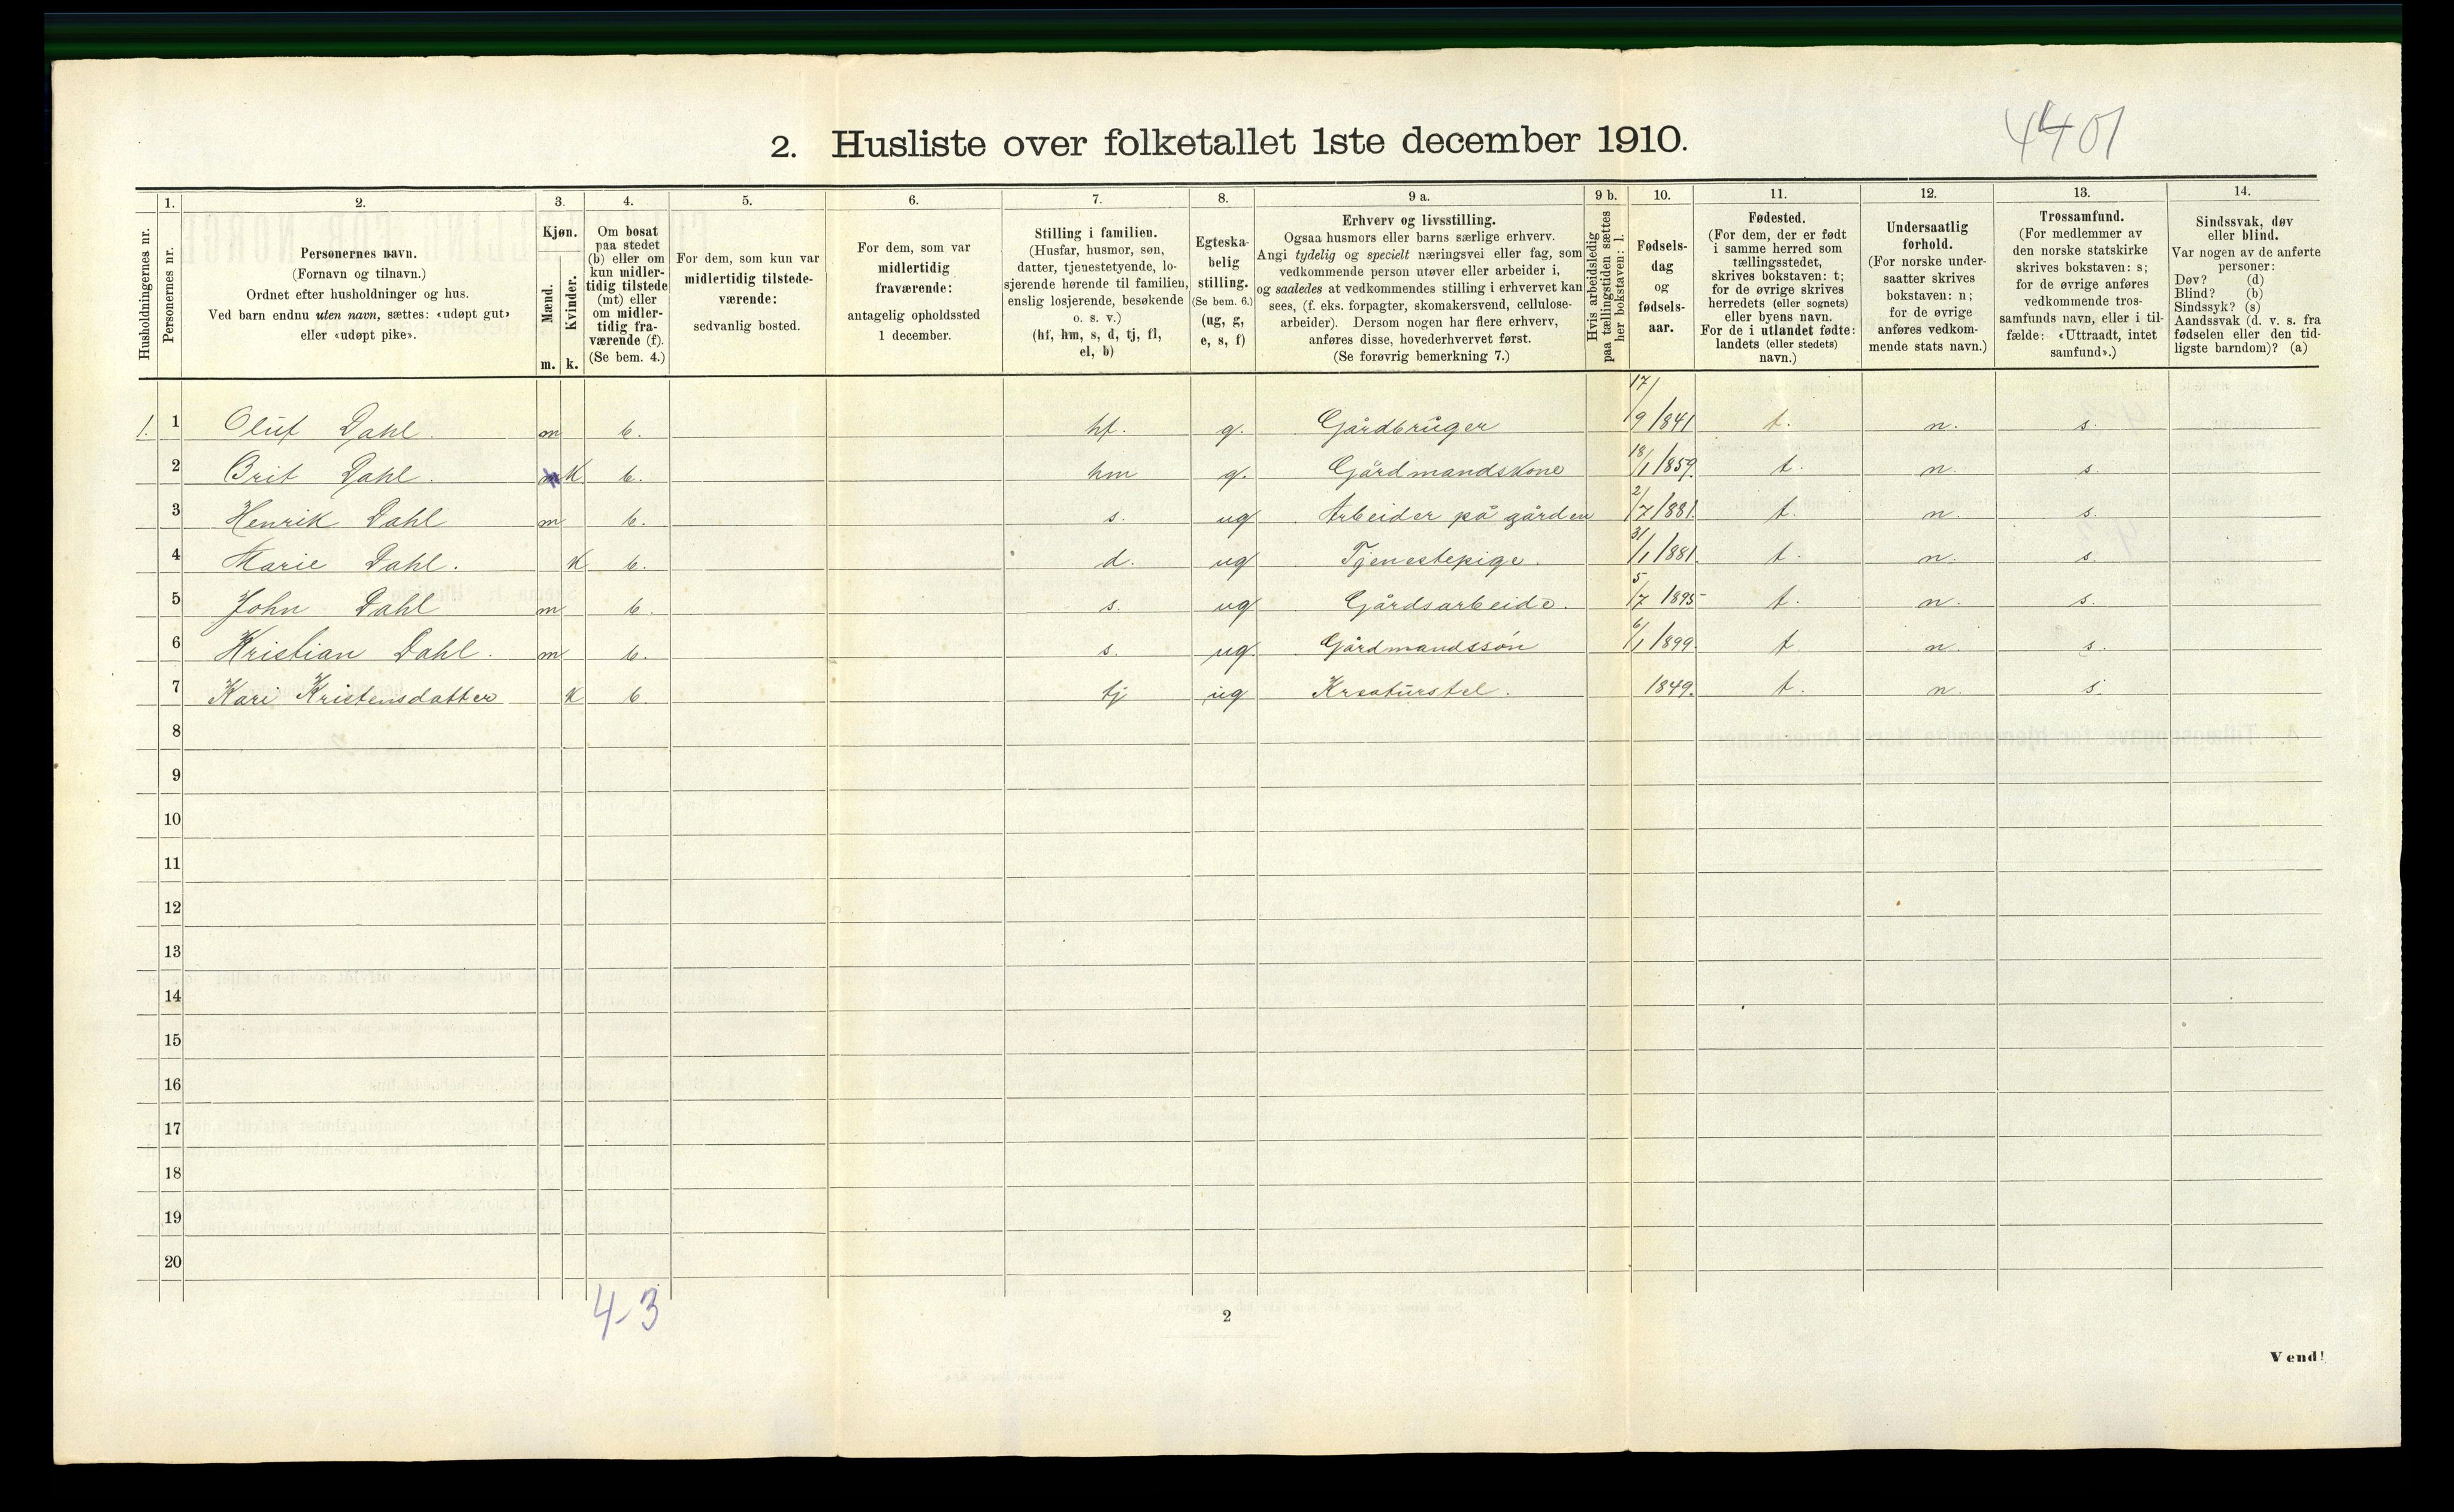 4401
2. Husliste over folketallet 1ste december 1910.
Husholdningernes nr.
1. Personernes nr.
2. Personernes navn. (Fornavn og tilnavn.) Ordnet efter husholdninger og hus. Ved barn endnu uten navn, sættes: «udøpt gut» eller «udøpt pike».
3. Kjøn. Mænd. m. Kvinder. k.
4. Om bosat paa stedet (b) eller om kun midlertidig tilstede (mt) eller om midlertidig fraværende (f). (Se bem. 4.)
5. For dem, som kun var midlertidig tilstedeværende: sedvanlig bosted.
6. For dem, som var midlertidig fraværende: antagelig opholdssted 1 december.
7. Stilling i familien. (Husfar, husmor, søn, datter, tjenestetyende, losjerende hørende til familien, enslig losjerende, besøkende o. s. v.) (hf, hm, s, d, tj, fl, el, b)
8. Egteskabelig stilling. (Se bem. 6.) (ug, g, e, s, f)
9 a. Erhverv og livsstilling. Ogsaa husmors eller barns særlige erhverv. Angi tydelig og specielt næringsvei eller fag, som vedkommende person utøver eller arbeider i, og saaledes at vedkommendes stilling i erhvervet kan sees, (f. eks. forpagter, skomakersvend, cellulosearbeider). Dersom nogen har flere erhverv, anføres disse, hovederhvervet først. (Se forøvrig bemerkning 7.)
9 b. Hvis arbeidsledig paa tællingstiden sættes her bokstaven: l.
10. Fødselsdag og fødselsaar.
11. Fødested. (For dem, der er født i samme herred som tællingsstedet, skrives bokstaven: t; for de øvrige skrives herredets (eller sognets) eller byens navn. For de i utlandet fødte: landets (eller stedets) navn.)
12. Undersaatlig forhold. (For norske undersaatter skrives bokstaven: n; for de øvrige anføres vedkommende stats navn.)
13. Trossamfund. (For medlemmer av den norske statskirke skrives bokstaven: s; for de øvrige anføres vedkommende trossamfunds navn, eller i tilfælde: «Uttraadt, intet samfund».)
14. Sindssvak, døv eller blind. Var nogen av de anførte personer: Døv? (d) Blind? (b) Sindssyk? (s) Aandssvak (d. v. s. fra fødselen eller den tidligste barndom)? (a)
1. 1 Oluf Dahl. m b. hf. g. Gårdbruger 17/9 1841 t. n. s.
2 Brit Dahl. K b. hm g. Gårdmandskone 18/1 1859. t. n. s.
3 Henrik Dahl m b. s. ug Arbeider på gården 2/7 1881. t. n. s.
4 Marie Dahl. K b. d. ug Tjenestepige. 31/1 1881. t. n. s.
5 John Dahl m b. s. ug Gårdsarbeide. 5/7 1895 t. n. s.
6 Kristian Dahl. m b. s. ug. Gårdmandssøn 6/1 1899. t n. s.
7 Kari Kristensdatter K b. tj ug Kreaturstel. 1849. t. n. s.
8
9
10
11
12
13
14
15
16
17
18
19
20
4-3
2
Vend!